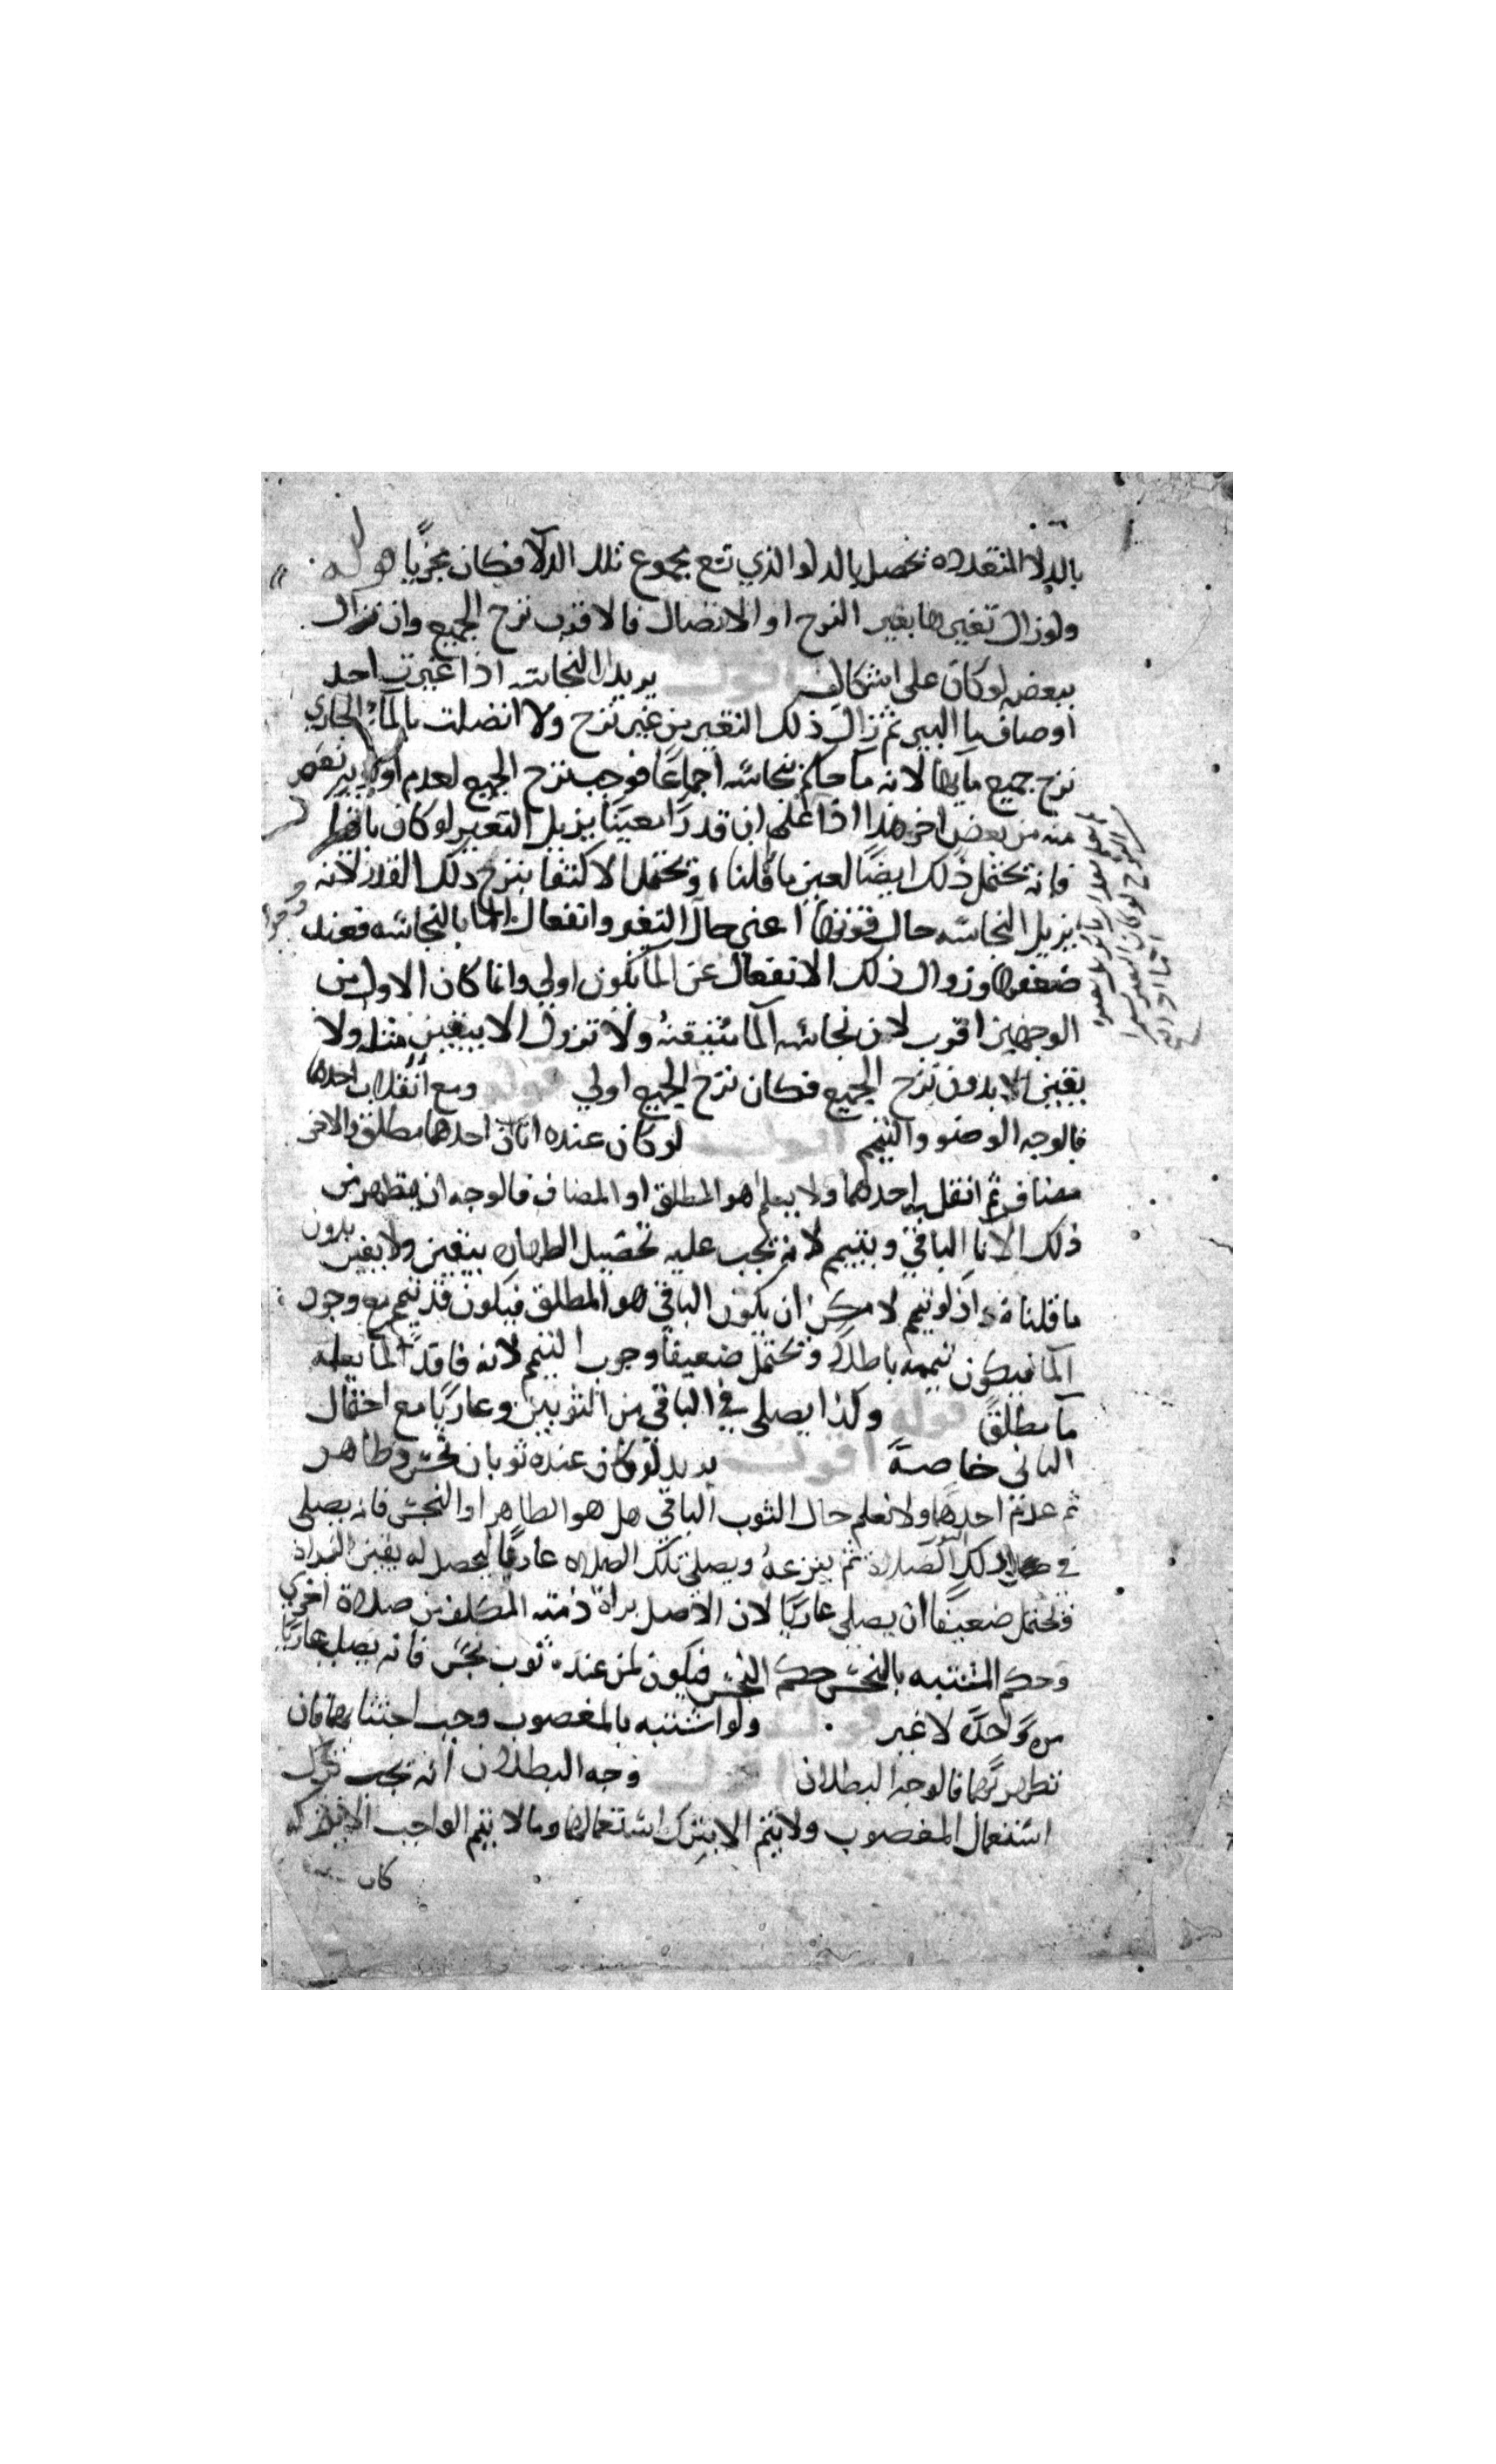 بالدلا المتعدده تحصل بالدلو الذي تسع مجموع تلك الدلا فكان مجزيا قوله
ولو زال تغيرها بغير النزح او الاتصال فالاقرب نزح الجميع وان زال
ببعضه لو كان على اشكال اقول يريد ان النجاسه اذا غيرت احد
اوصاف ما البير ثم زال ذلك التغير من غير نزح ولا اتصلت بالماء الجاري
نزح جميع مايها لانه ما حكم بنجاسته اجماعا فوجب نزح الجميع لعدم اولوية بعض
منه من بعض اخر هذا اذا علم ان قدرا معينا يزيل التغير لو كان باقيا
فانه يحتمل ذلك ايضا لعين ما قلناه ويحتمل الاكتفا بنزح ذلك القدر لانه
يزيل النجاسه حال قوتها اعني حال التغير وانفعال الما بالنجاسه فعند
ضعفها وزوال ذلك الانفعال عن الما يكون اولى وانما كان الاول من
الوجهين اقرب لان نجاسه الما متيقنة ولا تزول الا بيقين مثله ولا
يقين الا بدون نزح الجميع فكان نزح الجميع اولى قوله ومع انقلاب احدهما
فالوجه الوضو والتيمم اقول لو كان عنده اناان احدهما مطلق والاخر
مضاف ثم انقلب احدهما ولا يعلم هو المطلق او المضاف فالوجه ان يتطهر من
ذلك الانا الباقي ويتيمم لانه يجب عليه تحصيل الطهاره بيقين ولا يقين بدون
ما قلناه اذ لو تيمم لامكن ان يكون الباقي هو المطلق فيكون قد تيمم مع وجود
الما فيكون تيممه باطلا ويحتمل ضعيفا وجوب التيمم لانه فاقد لما يعلمه
ما مطلقا قوله وكذا يصلي في الباقي من الثوبين وعاريا مع احتمال
الثاني خاصة اقول يريد لو كان عنده ثوبان نجس وطاهر
ثم عدم احدهما ولا نعلم حال الثوب الباقي هل هو الطاهر او النجس فانه يصلي
في ذلك الثوب الصلاة ثم ينزعه ويصلي تلك الصلاه عاريا ليحصل له يقين البراة
ويحتمل ضعيفا ان يصلي عاريا لان الاصل براة ذمته المكلف من صلاة اخرى
وحكم المشتبه بالنجس حكم النجس فيكون كمن عنده ثوب نجس فانه يصلي عاريا
مرة واحدة لا غير قوله ولو اشتبه بالمغصوب وجب اجتنابهما فان
تطهر بهما فالوجه البطلان اقول وجه البطلان انه يجب ترك
استعمال المغصوب ولا يتم الا بترك استعمالهما وما لا يتم الواجب الا بتركه
كان